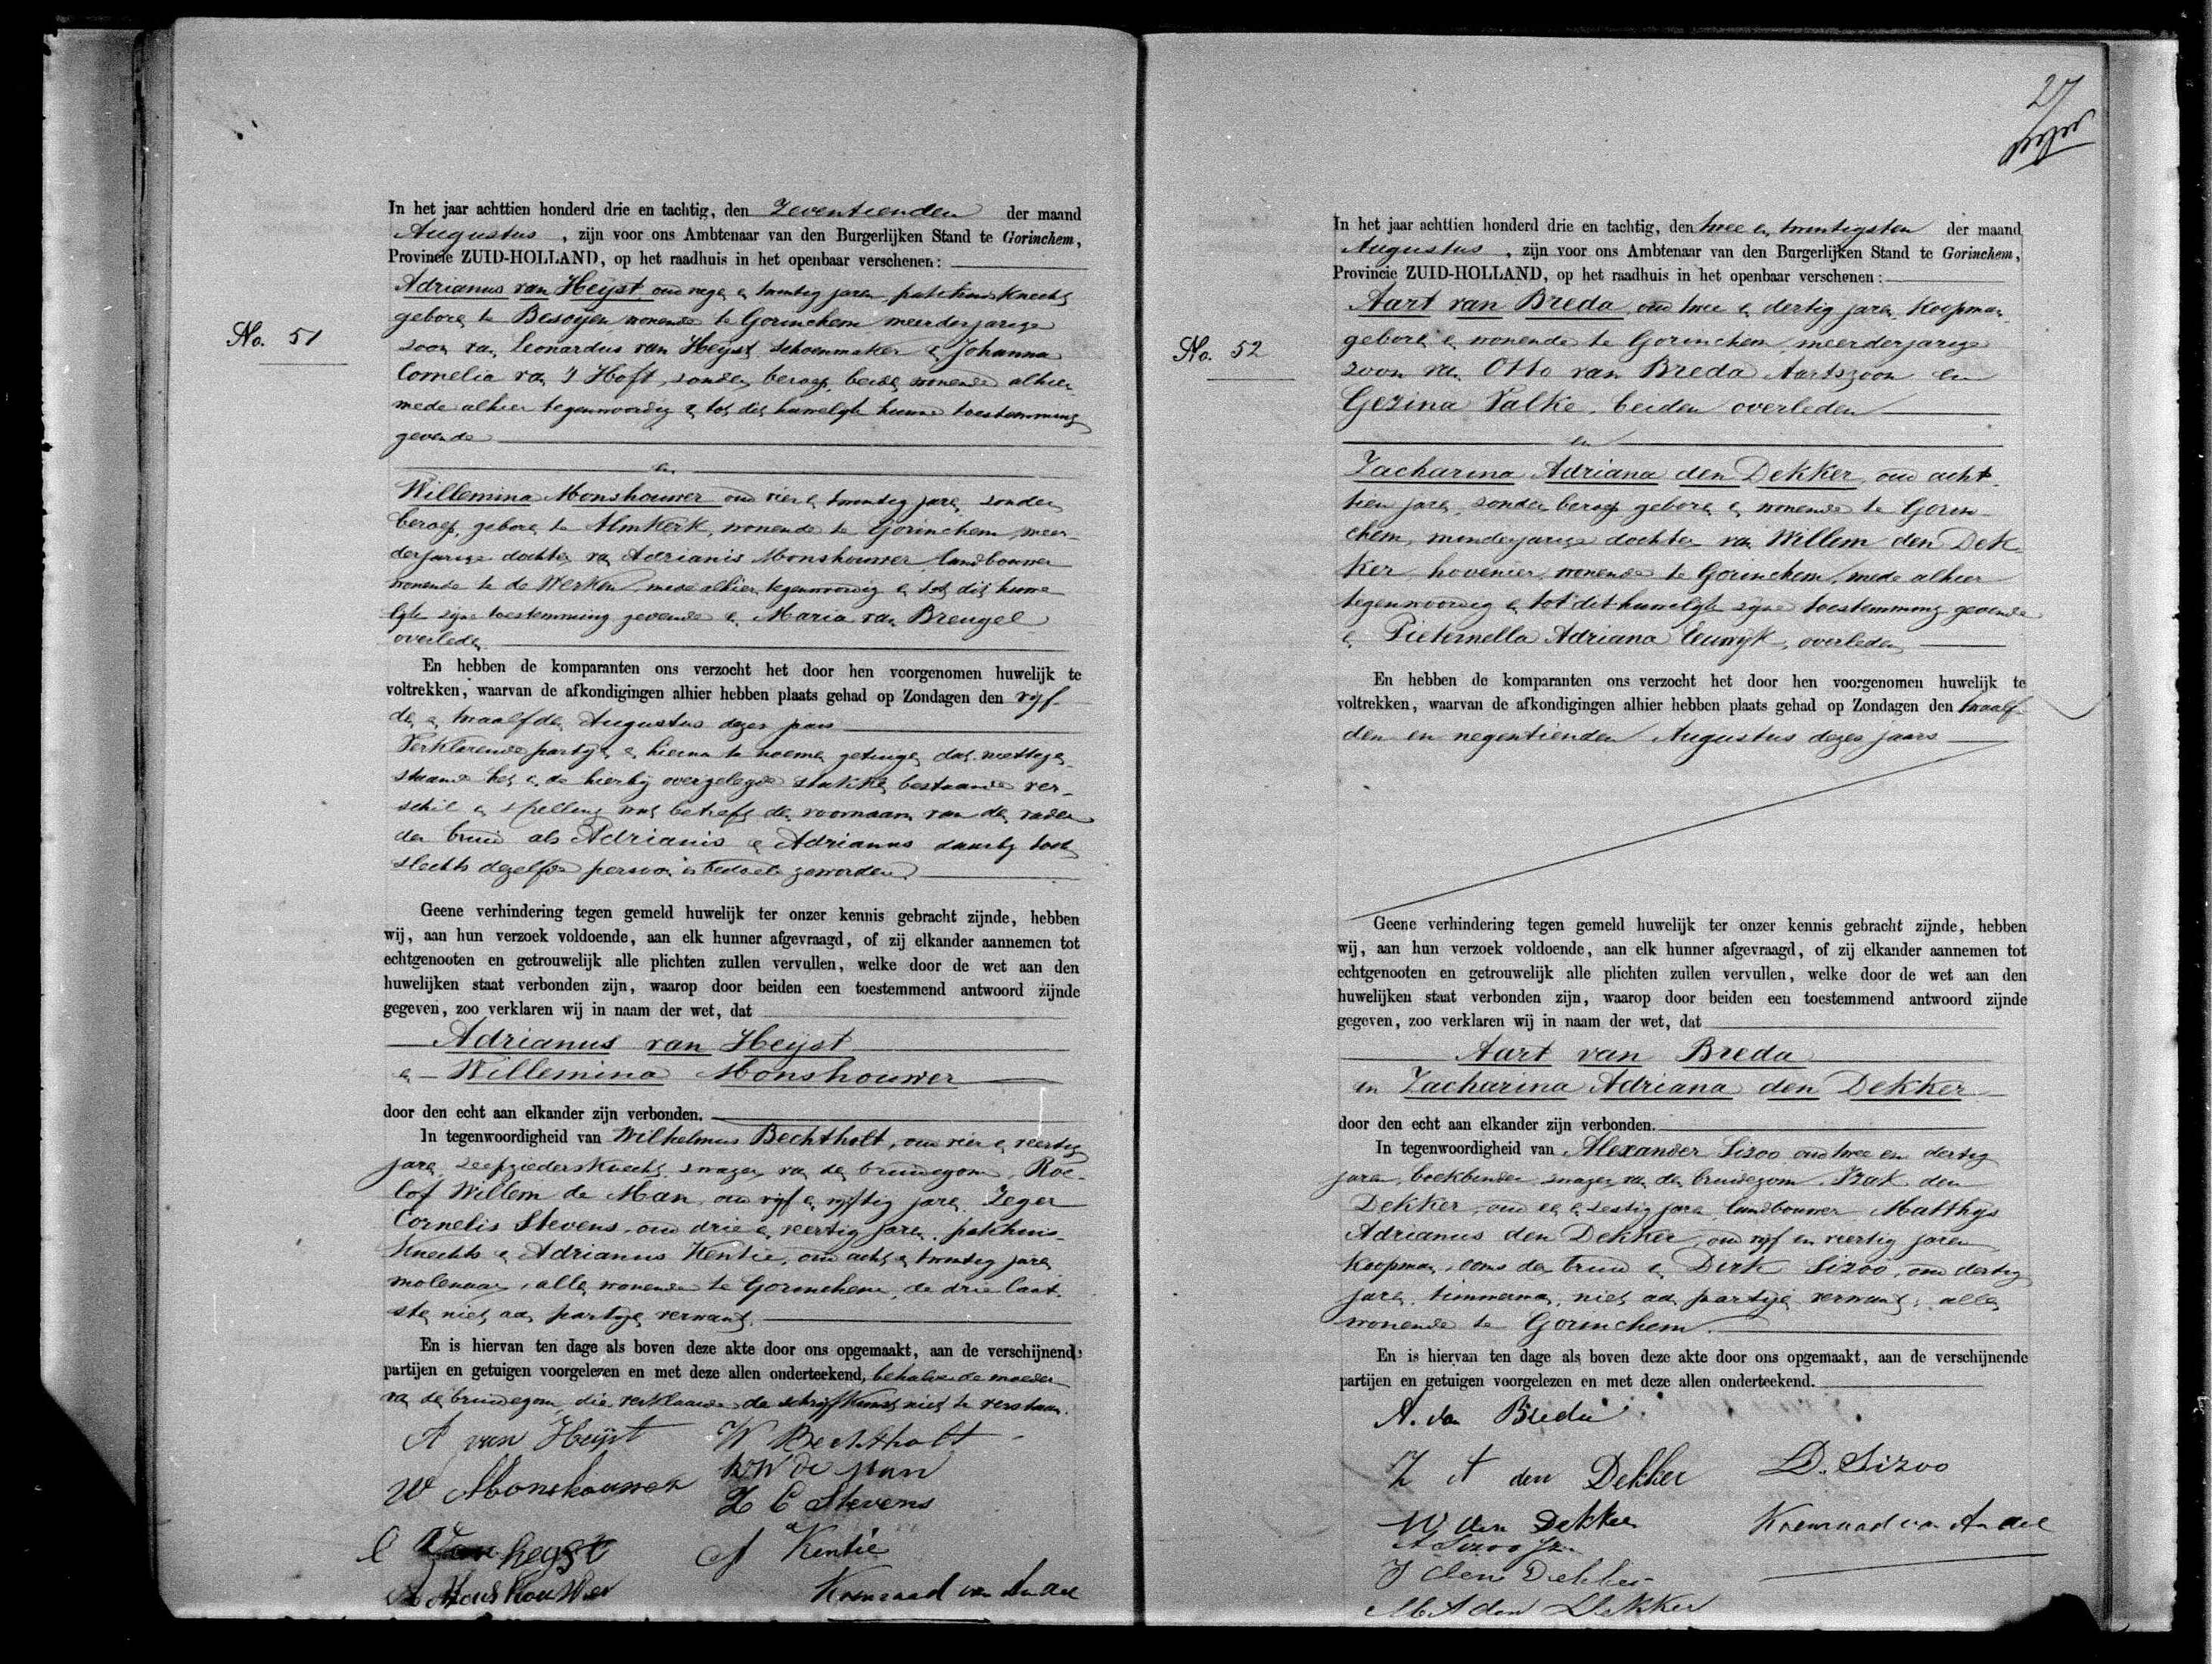 No. 51
In het jaar achttien honderd drie en tachtig, den Zeventienden der maand
Augustus, zijn voor ons Ambtenaar van den Burgerlijken Stand te Gorinchem,
Provincie ZUID-HOLLAND, op het raadhuis in het openbaar verschenen:
Adrianus van Heijst oud negen en twintig jaren pakhuisknecht
geboren te Besoyen wonende te Gorinchem meerderjarige
zoon van Leonardus van Heijst schoenmaker en Johanna
Cornelia van 't Hoft, zonder beroep, beide wonende alhier
mede alhier tegenwoordig en tot dit huwelijk hunne toestemming
gevende
en
Willemina Monshouwer oud vier en twintig jaren zonder
beroep, geboren te Almkerk, wonende te Gorinchem, meer-
derjarige dochter van Adrianis Monshouwer landbouwer
wonende te de Werken, mede alhier tegenwoordig en tot dit huwe
lijk zijne toestemming gevende en Maria van Breugel
overleden
En hebben de komparanten ons verzocht het door hen voorgenomen huwelijk te
voltrekken, waarvan de afkondigingen alhier hebben plaats gehad op Zondagen den vijf-
den en twaalfden Augustus dezes jaars
Verklarende partijen en hierna te noemen getuigen dat niettegen-
staande het in de hierbij overgelegde stukken bestaande ver-
schil in spelling wat betreft den voornaam van den vader
der bruid als Adrianis en Adrianus daarbij toch
slechts dezelfde persoon is bedoeld geworden
Geene verhindering tegen gemeld huwelijk ter onzer kennis gebracht zijnde, hebben
wij, aan hun verzoek voldoende, aan elk hunner afgevraagd, of zij elkander aannemen tot
echtgenooten en getrouwelijk alle plichten zullen vervullen, welke door de wet aan den
huwelijken staat verbonden zijn, waarop door beiden een toestemmend antwoord zijnde
gegeven, zoo verklaren wij in naam der wet, dat
Adrianus van Heijst
en Willemina Monshouwer
door den echt aan elkander zijn verbonden.
In tegenwoordigheid van Wilhelmus Bechtholt, oud vier en veertig
jaren, zeepziedersknecht zwager van den bruidegom, Roe-
lof Willem de Man, oud vijf en vijftig jaren, Zeger
Cornelis Stevens, oud drie en veertig jaren, pakhuis-
knechts en Adrianus Kentie, oud acht en twintig jaren
molenaar, allen wonende te Gorinchem, de drie laat-
sten niet aan partijen verwant.
En is hiervan ten dage als boven deze akte door ons opgemaakt, aan de verschijnende
partijen en getuigen voorgelezen en met deze allen onderteekend, behalve de moeder
van den bruidegom, die verklaarde de schrijfkunst niet te verstaan.
A van Heijst W Bechtholt
W Monshouwer RW de Man
Z C Stevens
L van heyst A Kentie
A Monshouwer Koenraad van Andel
27
No. 52
In het jaar achttien honderd drie en tachtig, den twee en twintigsten der maand
Augustus, zijn voor ons Ambtenaar van den Burgerlijken Stand te Gorinchem,
Provincie ZUID-HOLLAND, op het raadhuis in het openbaar verschenen:
Aart van Breda oud twee en dertig jaren, koopman
geboren en wonende te Gorinchem, meerderjarige
zoon van Otto van Breda Aartszoon en
Gezina Valke, beiden overleden
en
Zacharina Adriana den Dekker, oud acht-
tien jaren, zonder beroep geboren en wonende te Gorin-
chem, minderjarige dochter van Willem den Dek-
ker, hovenier, wonende te Gorinchem, mede alhier
tegenwoordig en tot dit huwelijk zijne toestemming gevende
en Pieternella Adriana Euwijk, overleden
En hebben de komparanten ons verzocht het door hen voorgenomen huwelijk te
voltrekken, waarvan de afkondigingen alhier hebben plaats gehad op Zondagen den twaalf-
den en negentienden Augustus dezes jaars
Geene verhindering tegen gemeld huwelijk ter onzer kennis gebracht zijnde, hebben
wij, aan hun verzoek voldoende, aan elk hunner afgevraagd, of zij elkander aannemen tot
echtgenooten en getrouwelijk alle plichten zullen vervullen, welke door de wet aan den
huwelijken staat verbonden zijn, waarop door beiden een toestemmend antwoord zijnde
gegeven, zoo verklaren wij in naam der wet, dat
Aart van Breda
en Zacharina Adriana den Dekker
door den echt aan elkander zijn verbonden.
In tegenwoordigheid van Alexander Sizoo oud twee en dertig
jaren, boekbinder, zwager van den bruidegom, Izak den
Dekker, oud een en zestig jaren landbouwer, Matthijs
Adrianus den Dekker, oud vijf en veertig jaren
koopman, ooms der bruid en Dirk Sizoo, oud dertig
jaren, timmerman, niet aan partijen verwant, allen
wonende te Gorinchem.
En is hiervan ten dage als boven deze akte door ons opgemaakt, aan de verschijnende
partijen en getuigen voorgelezen en met deze allen onderteekend.
A. van Breda
Z A den Dekker D. Sizoo
W den Dekker Koenraad van Andel
A Sizoo Jzn
I den Dekker
M A den Dekker